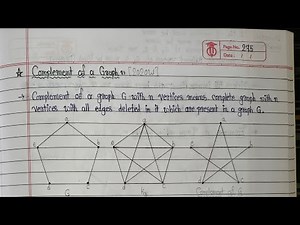 Page No.: 275
Date: / /
★ Complement of a Graph :
→ Complement of a graph G with n vertices means complete graph with n
vertices with all edges deleted in it which are present in a graph G.
G